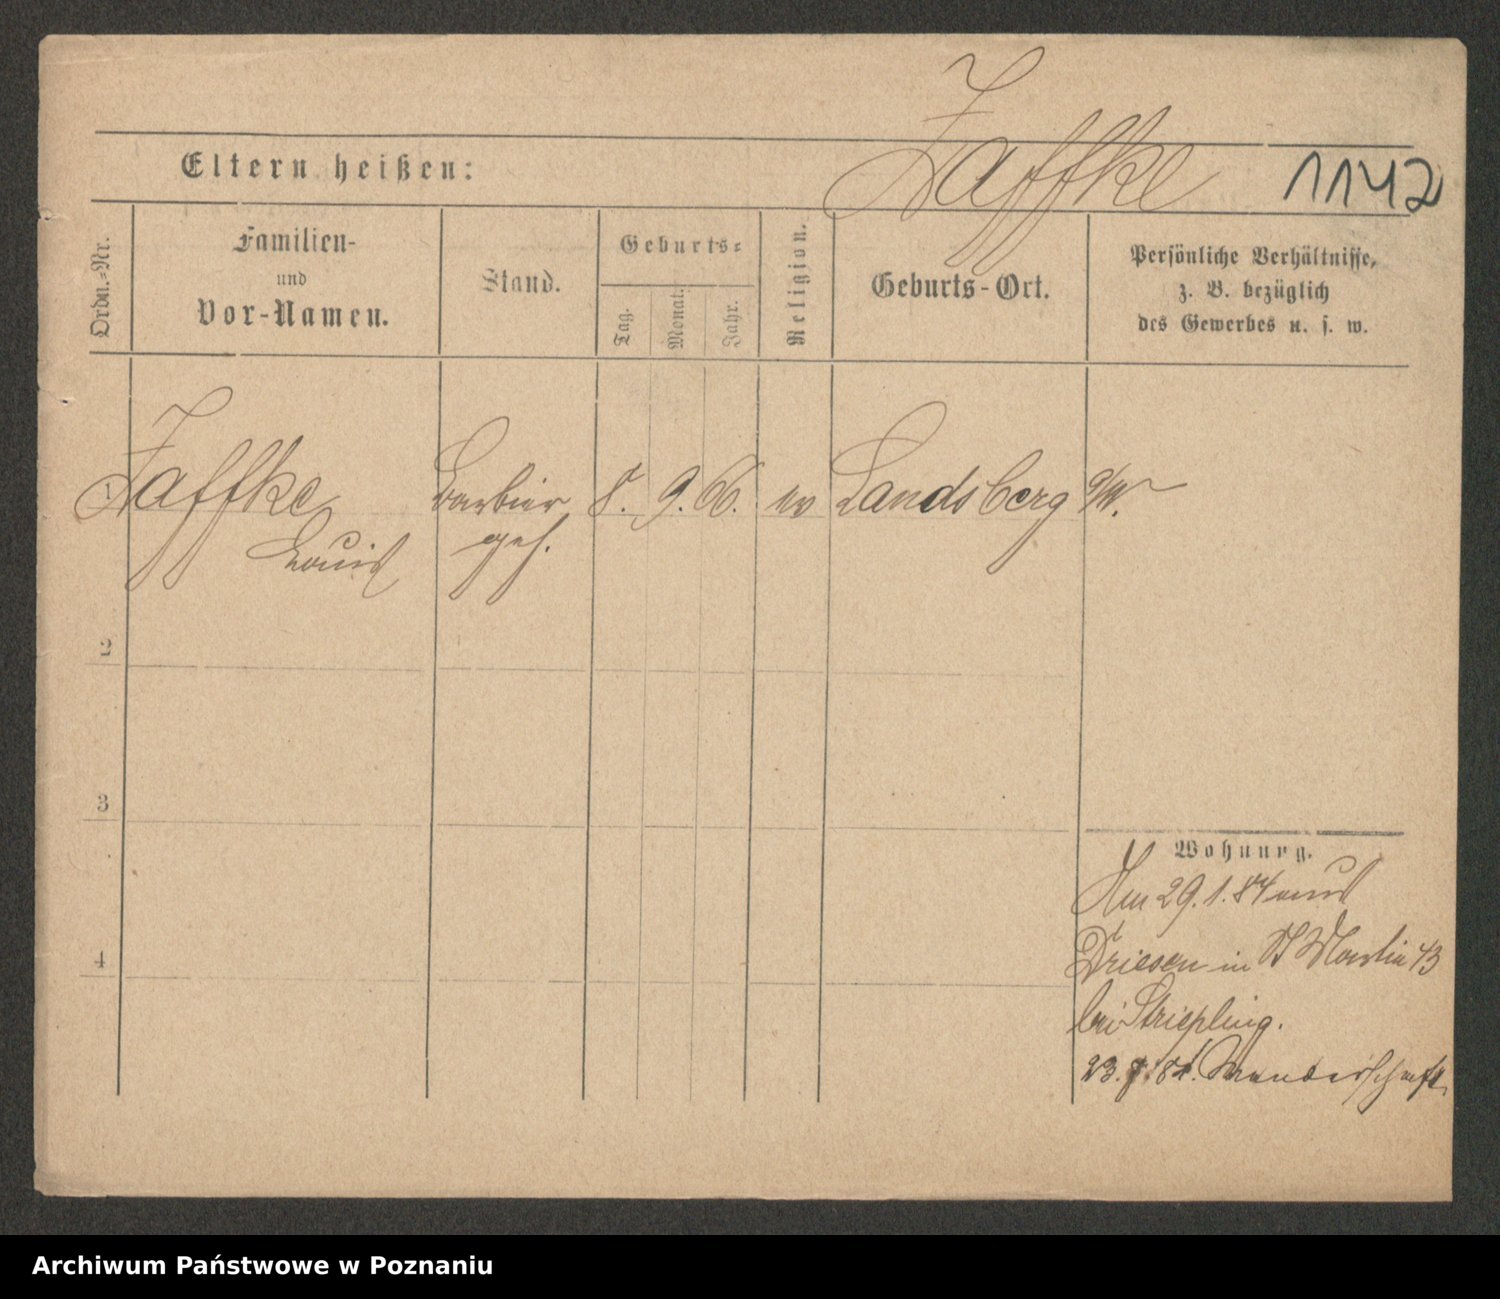 Jaffke
1142
Eltern heißen:
Ordn.-Nr.
Familien-
und
Vor-Namen.
Stand.
Geburts-
Tag.
Monat.
Jahr.
Religion.
Geburts-Ort.
Persönliche Verhältnisse,
z. B. bezüglich
des Gewerbes u. s. w.
1 Jaffke Barbier 8. 9. 66. ev Landsberg a/W.
Louis geh.
2
3
4
Wohnung.
Am 29.1.84 aus
Driesen in St Martin 43
bei Striepling.
23. 84. Wanderschaft
Archiwum Państwowe w Poznaniu